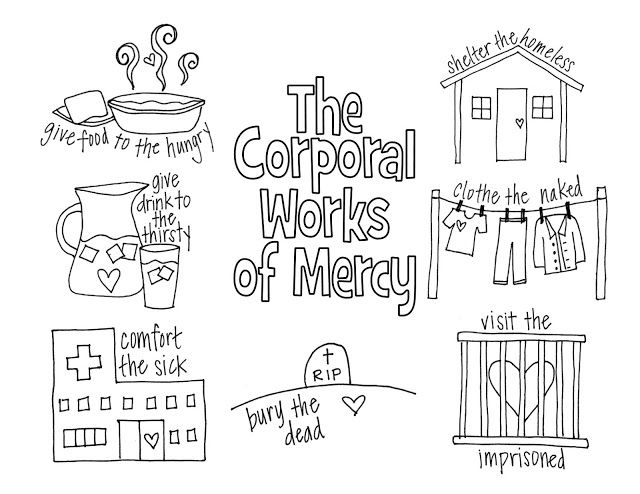 The
Corporal
Works
of Mercy
give food to the hungry
shelter the homeless
give
drink to
the
thirsty
clothe the naked
comfort
the sick
RIP
bury the
dead
visit the
imprisoned